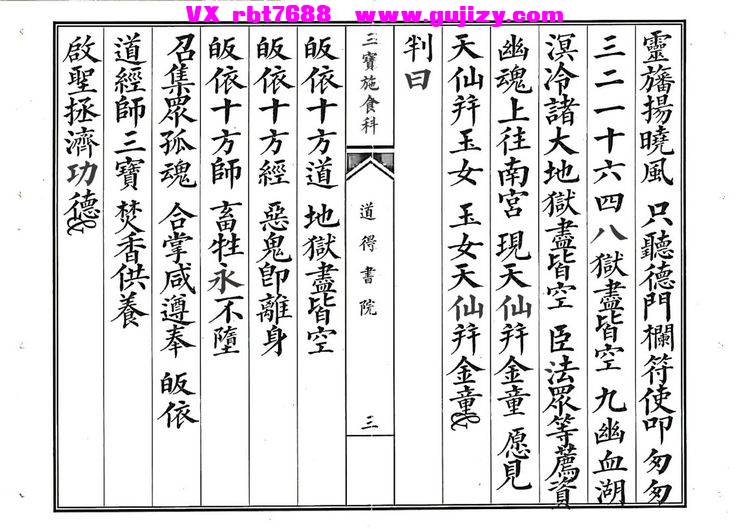 VX rbt7688 www.gujizy.com
靈旛揚曉風 只聽德門欄符使叩匆匆
三二一十六四八獄盡皆空 九幽血湖
溟冷諸大地獄盡皆空 臣法眾等薦資
幽魂上往南宮 現天仙辩金童 愿見
天仙辩玉女 玉女天仙辩金童
判曰
三寶施食科 道得書院 三
皈依十方道 地獄盡皆空
皈依十方經 惡鬼卽離身
皈依十方師 畜牲永不墮
召集眾孤魂 合掌咸遵奉 皈依
道經師三寶 焚香供養
啟聖拯濟功德